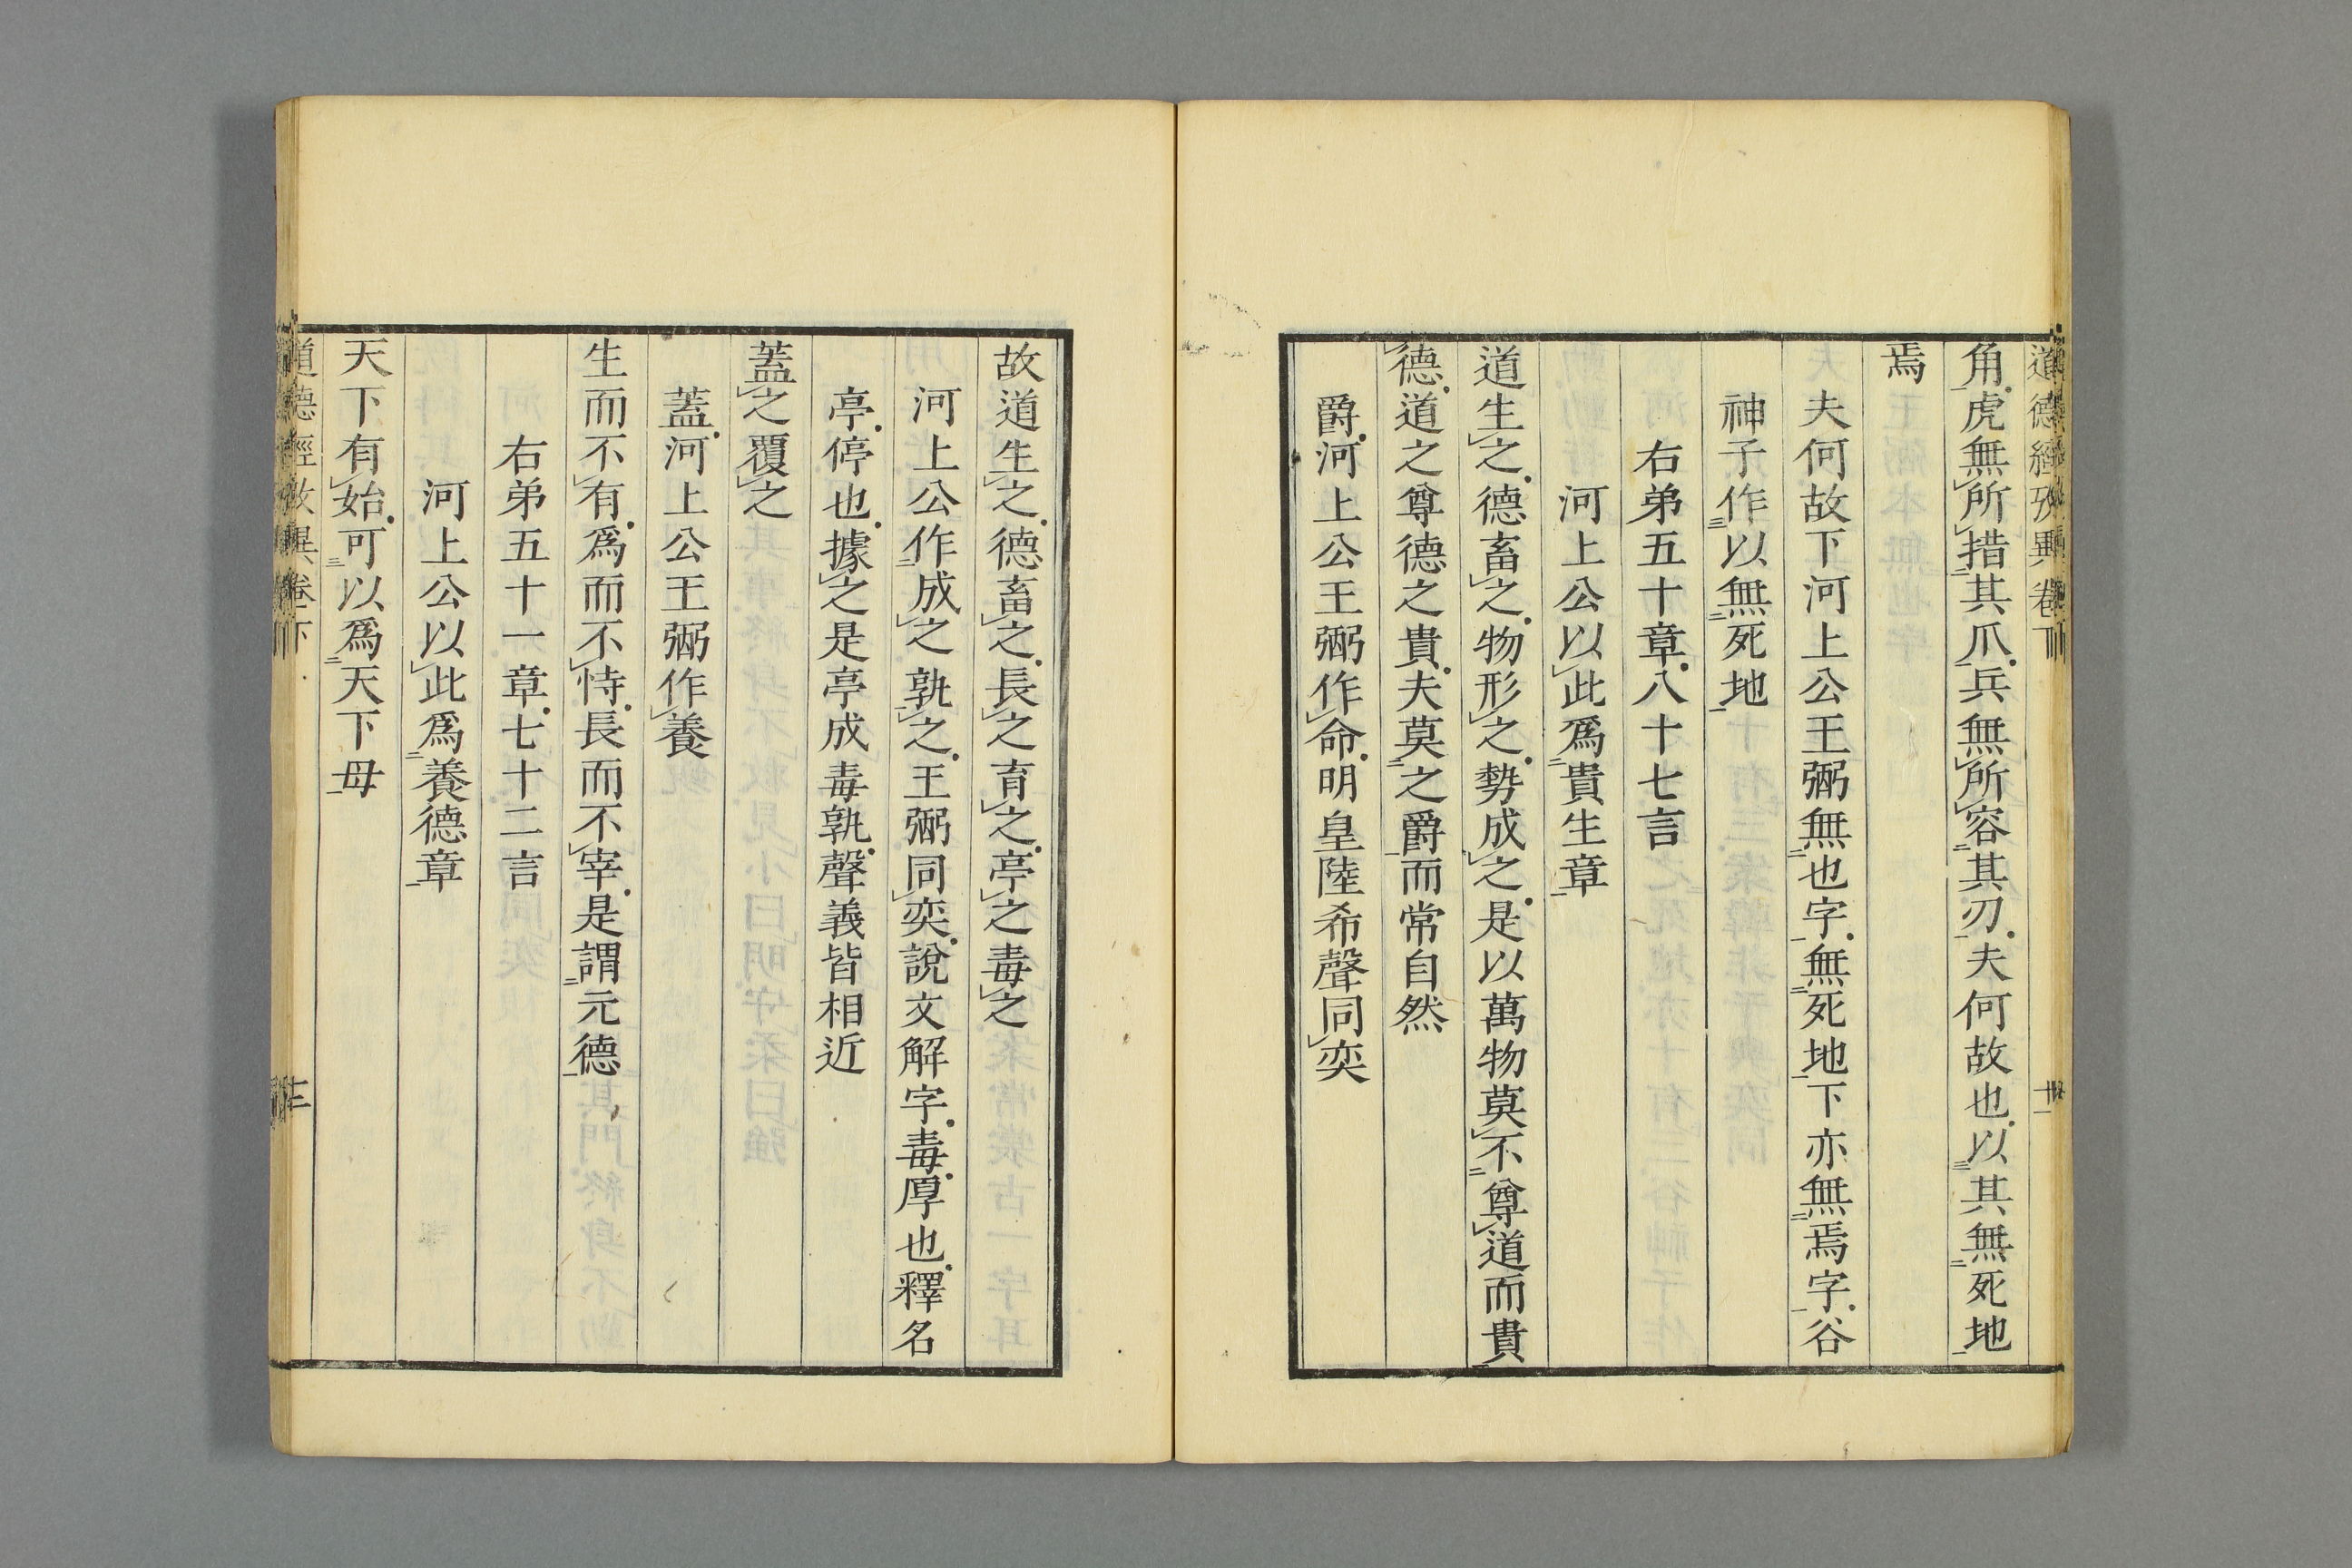 道德經攷異卷下
角虎無所措其爪兵無所容其刃夫何故也以其無死地
焉
夫何故下河上公王弼無也字無死地下亦無焉字谷
神子作以無死地
右弟五十章八十七言
河上公以此爲貴生章
道生之德畜之物形之勢成之是以萬物莫不尊道而貴
德道之尊德之貴夫莫之爵而常自然
爵河上公王弼作命明皇陸希聲同奕
故道生之德畜之長之育之亭之毒之
河上公作成之孰之王弼同奕說文解字毒厚也釋名
亭停也據之是亭成毒孰聲義皆相近
蓋之覆之
蓋河上公王弼作養
生而不有爲而不恃長而不宰是謂元德
右弟五十一章七十二言
河上公以此爲養德章
天下有始可以爲天下母
道德經攷異卷下